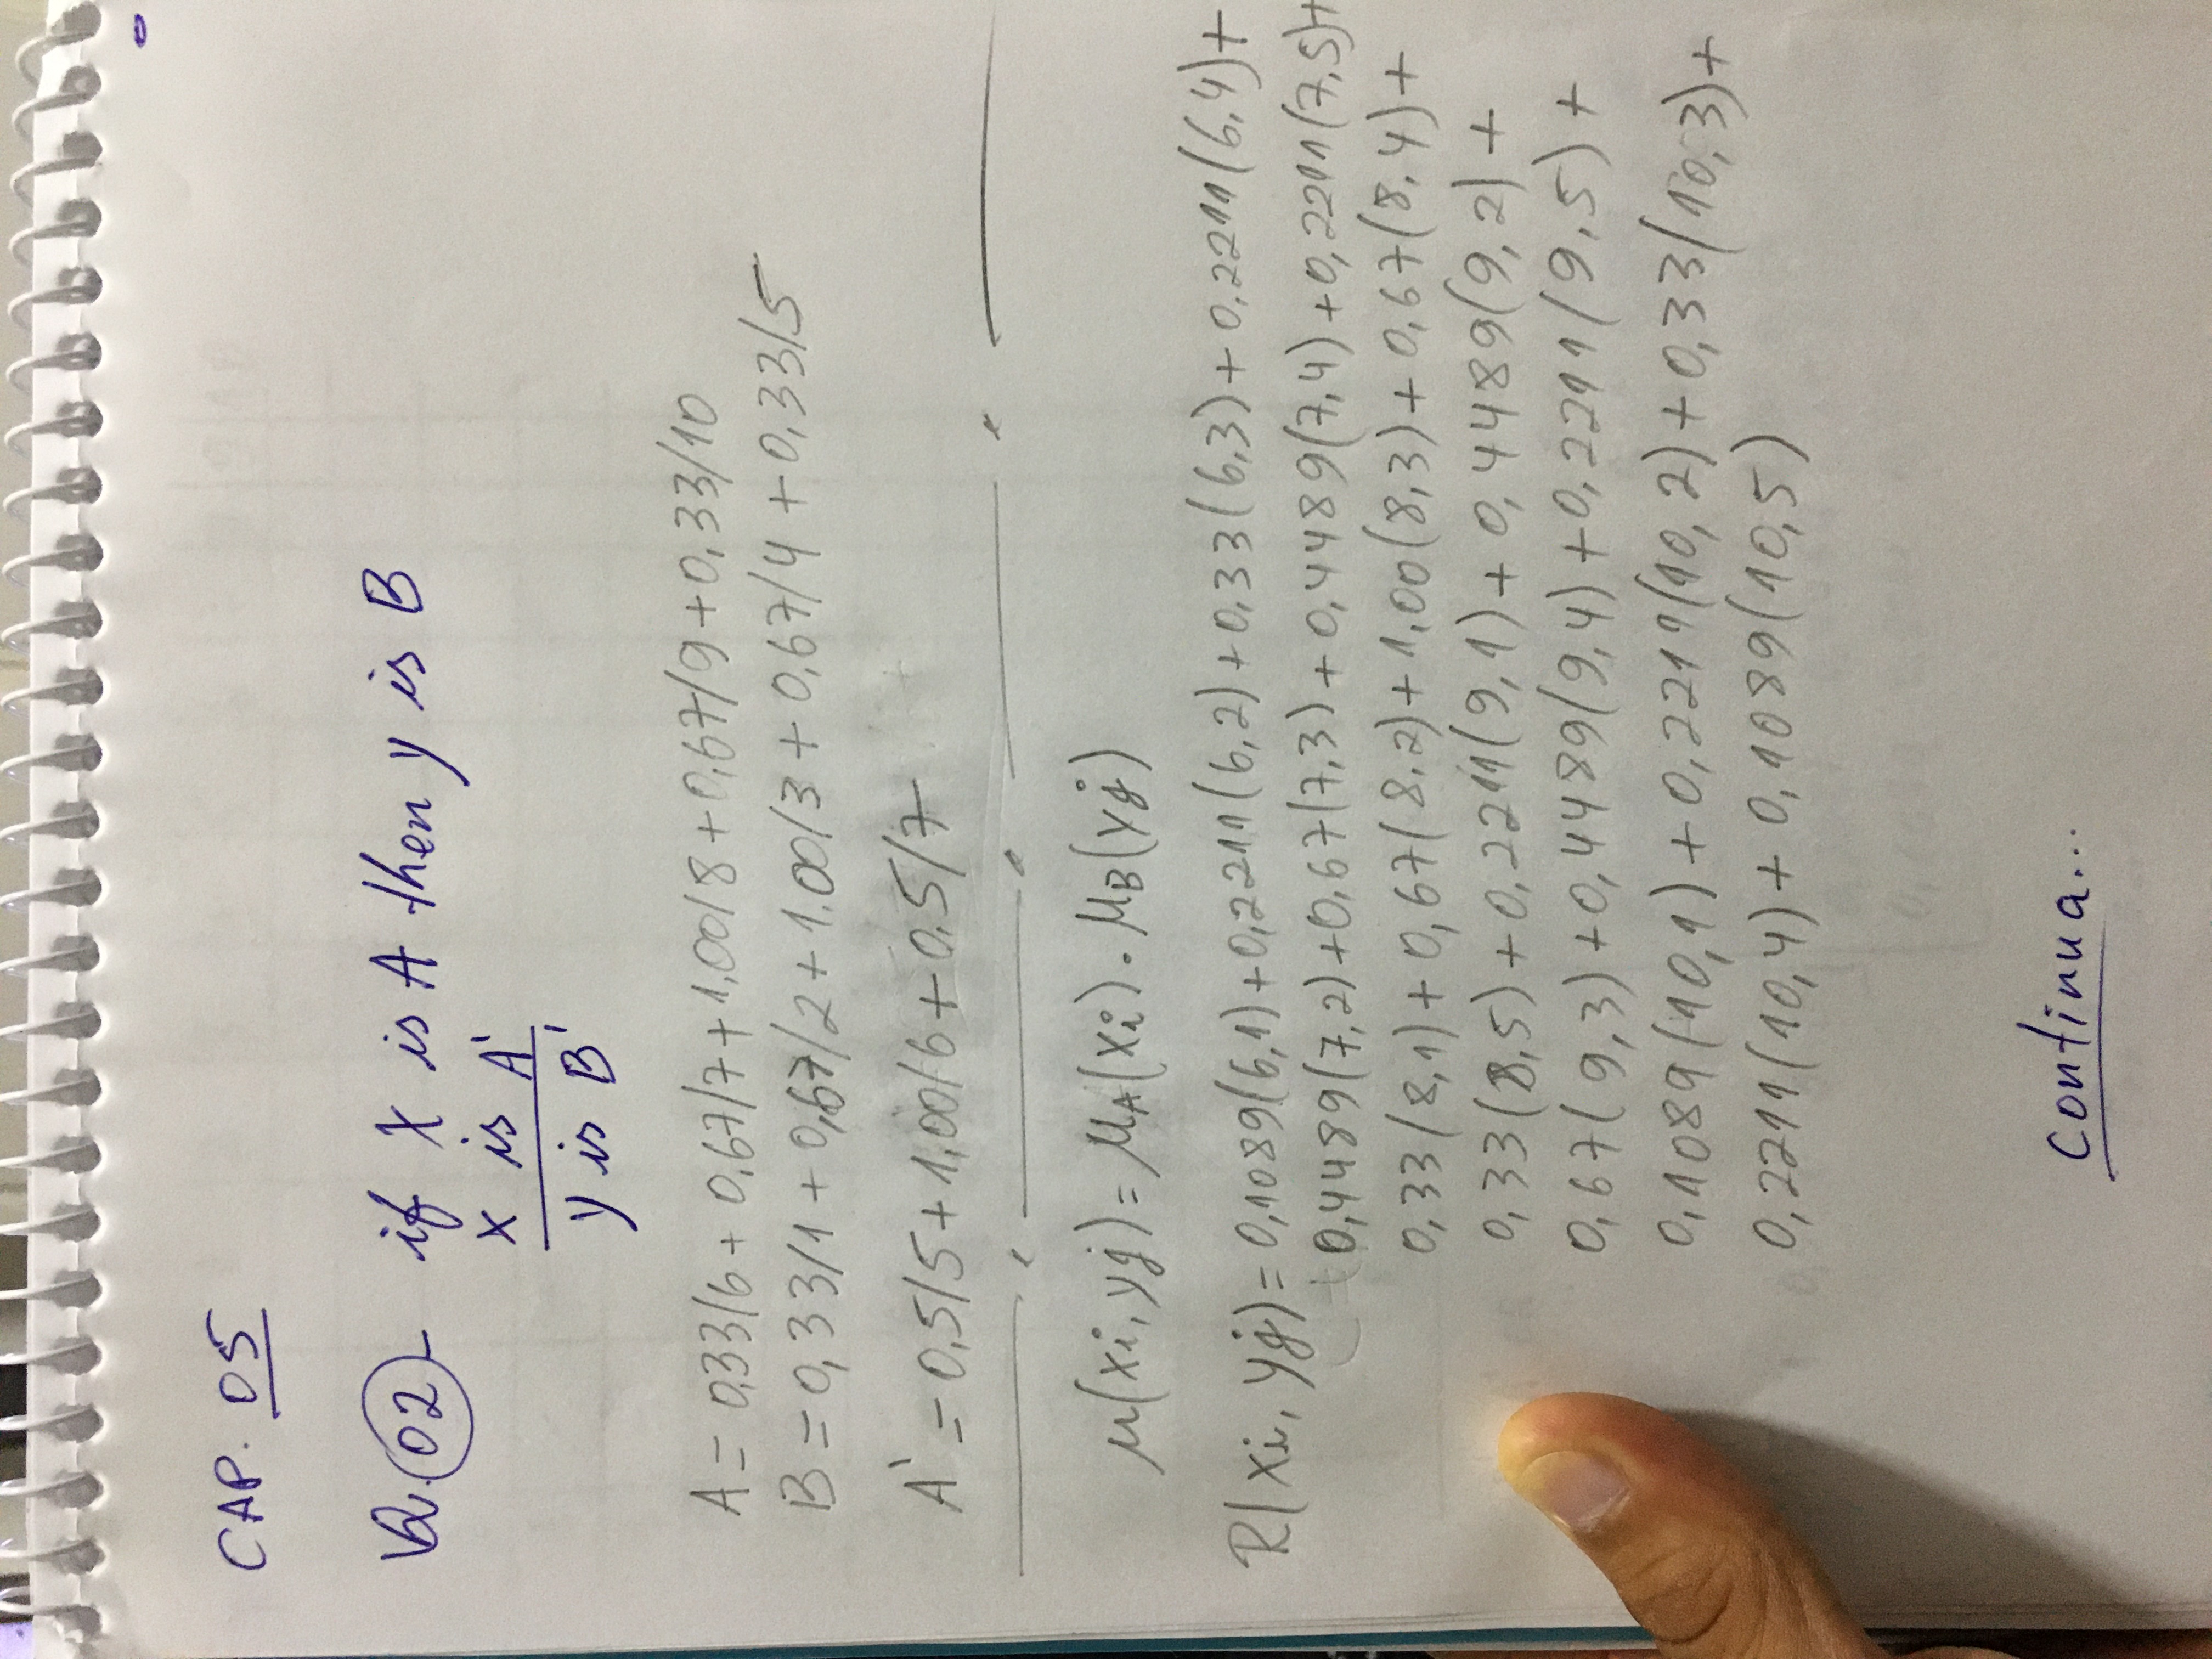 CAP. 05
Q. 02- if X is A then y is B
X is A'
y is B'
A = 0,33/6 + 0,67/7 + 1,00/8 + 0,67/9 + 0,33/10
B = 0,33/1 + 0,67/2 + 1.00/3 + 0,67/4 + 0,33/5
A' = 0,5/5 + 1,00/6 + 0,5/7
μ(xi, yj) = μA(xi) . μB(yj)
R(xi, yj) = 0,1089(6,1) + 0,2211(6,2) + 0,33(6,3) + 0,2211(6,4) +
0,4489(7,2) + 0,67(7,3) + 0,4489(7,4) + 0,2211(7,5) +
0,33(8,1) + 0,67(8,2) + 1,00(8,3) + 0,67(8,4) +
0,33(8,5) + 0,2211(9,1) + 0,4489(9,2) +
0,67(9,3) + 0,4489(9,4) + 0,2211(9,5) +
0,1089(10,1) + 0,2211(10,2) + 0,33(10,3) +
0,2211(10,4) + 0,1089(10,5)
continua...